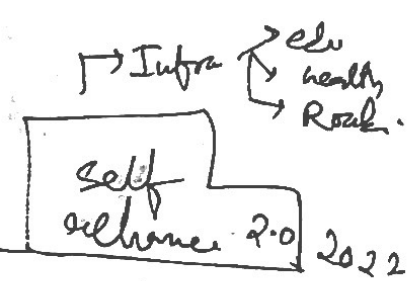 Infra
edu
health
Roads.
self
reliance 2.0 2022